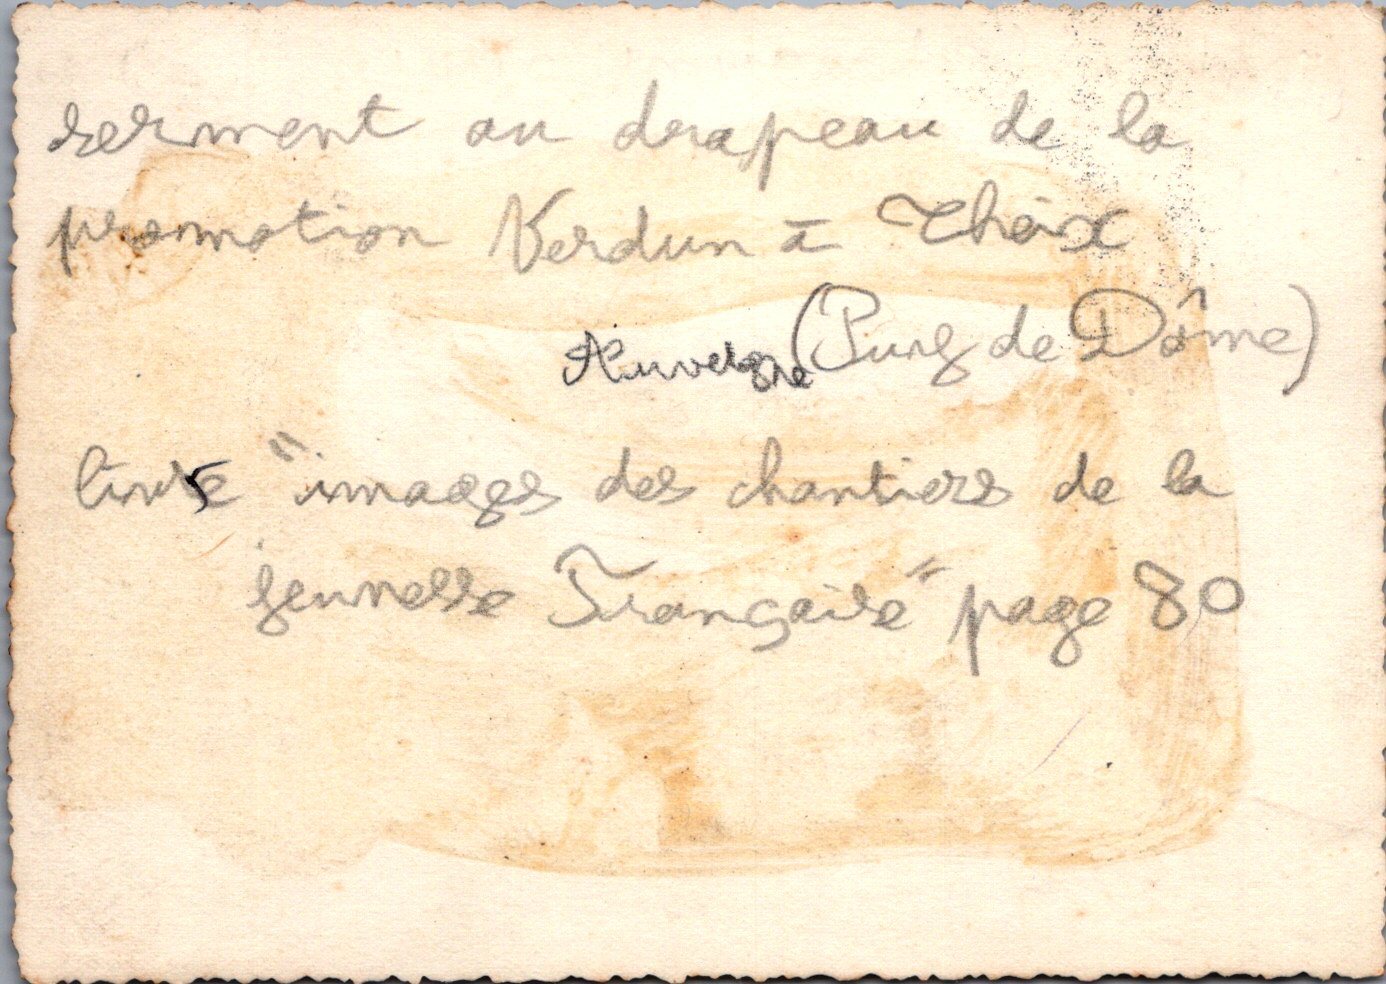 serment au drapeau de la
promotion Verdun à Theix
Auvergne (Puy de Dôme)
livre "images des chantiers de la
jeunesse Française" page 80